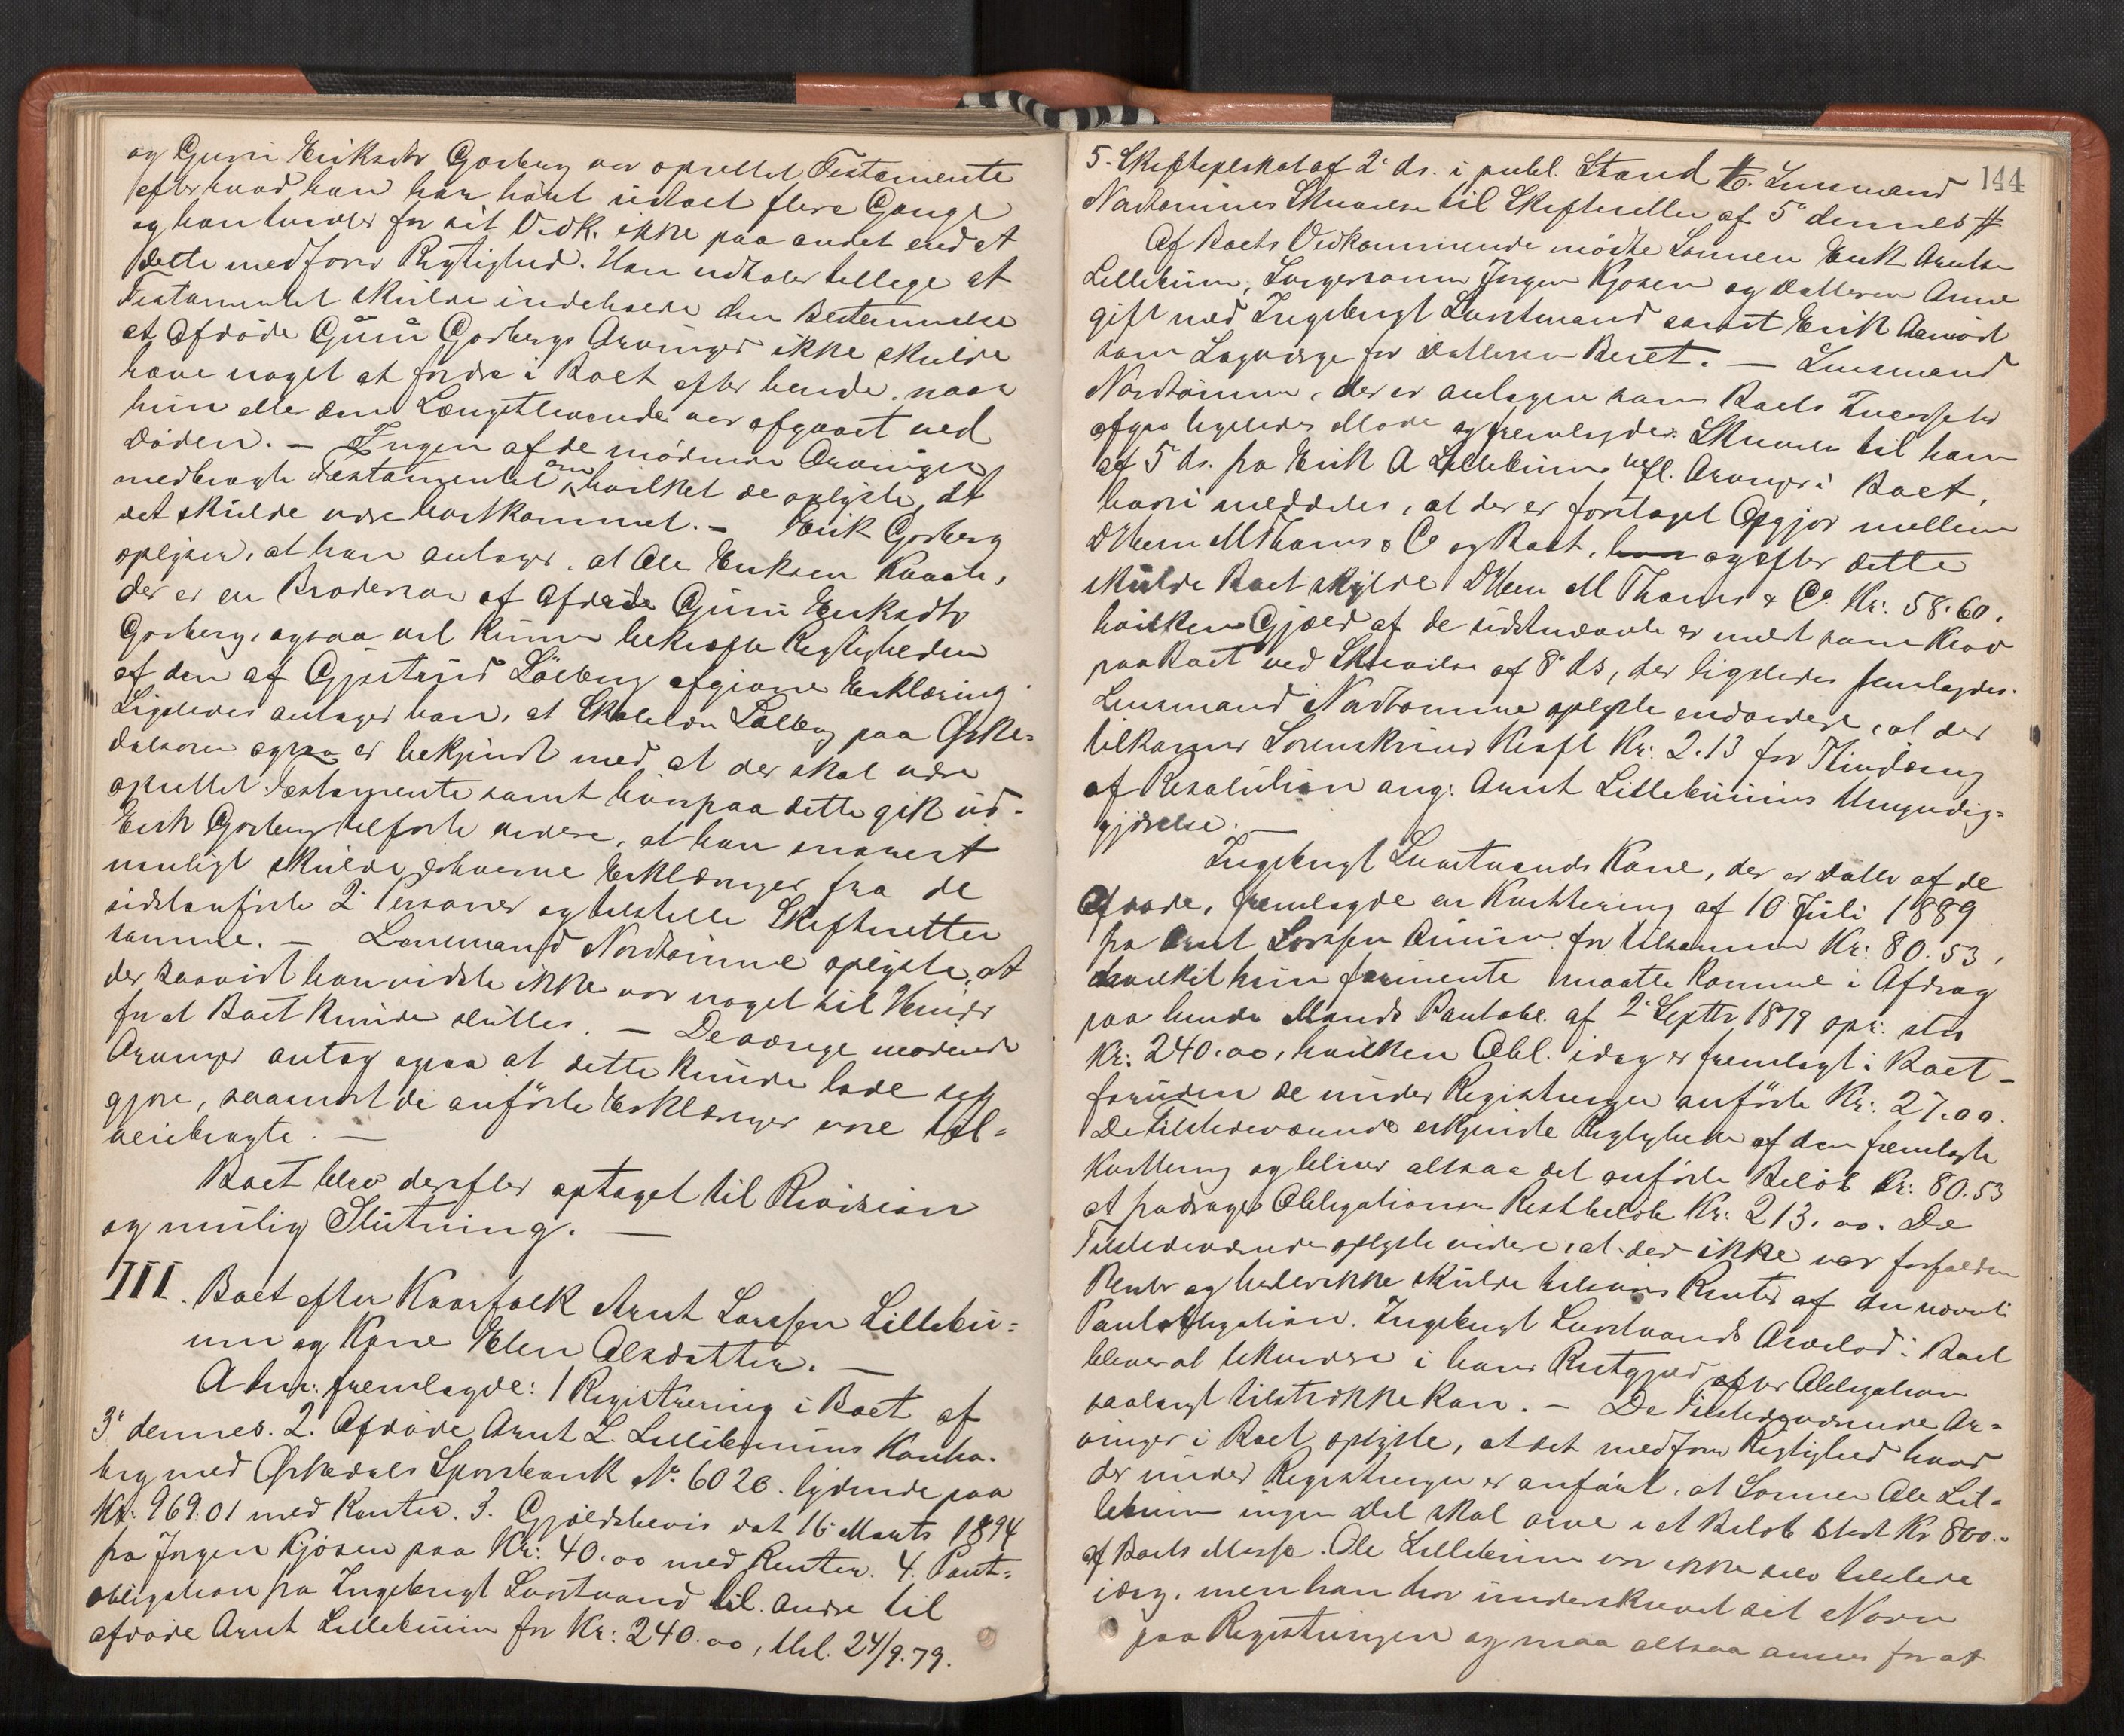 og Guru Eriksdtr Gorberg var oprettet Testamente
efter hvad han har hørt udtalt flere Gange
og han holder for sit Vedk. ikke paa andet end at
dette medfører Rigtighed. Han udtaler tillige at
Testamentet skulde indeholde den Bestemmelse
at afdøde Guru Gorbergs Arvinger ikke skulde
have noget at fordre i Boet efter hende, naar
hun eller den Længstlevende var afgaaet ved
Døden. — Ingen af de mødende Arvinger
medbragte Testamentet om hvilket de oplyste, at
det skulde være bortkommet. — Erik Gorberg
oplyser, at han antager, at Ole Eriksen
der er en Brodersøn af afdøde Guru Eriksdtr
Gorberg, ogsaa vil kunne bekræfte Rigtigheden
af den af Gjertrud afgivne Erklæring.
Ligeledes antager han, at paa Ørke=
dalsøren ogsaa er bekjendt med at der skal være
oprettet Testamente samt hvorpaa dette gik ud.
Erik Gorberg tilførte videre, at han snarest
muligt skulde erhverve Erklæringer fra de
sidstanførte 2 Personer og tilstille Skifteretten
samme. — Lensmand Nordtømme oplyste, at
der saavidt han vidste ikke var noget til Hinder
for at Boet kunde sluttes. — De øvrige mødende
Arvinger antog ogsaa at dette kunde lade sig
gjøre, saasnart de anførte Erklæringer vare til=
veiebragte. —
Boet blev derefter optaget til Revision
og mulig Slutning. —
III. Boet efter Kaarfolk Arnt Larssen Lillebu=
um og Kone Elen Olsdatter. —
Adm: fremlagde: 1 Registrering i Boet af
3' dennes. 2. Afdøde Arnt L. Lillebuums Konto.
brg med Ørkedals Sparebank No 6020. lydende paa
Kr: 969.01 med Renter. 3. Gjældsbevis dat 16 Marts 1894
fra Jørgen Kjøsen paa Kr: 40.00 med Renter. 4. Pant=
obligation fra Ingebrigt til Andre til
afdøde Arnt Lillebuum for Kr: 240.00, thl. 24/9.79.
144
5. af 2' ds. i publ. Stand 6. Lensmand
Nordtømmes Skrivelse til Skifteretten af 5' dennes #
Af Boets Vedkommende mødte Sønnen Erik Arntsen
Lillebuum, Svigersønnen Jørgen Kjøsen og Datteren Anne
gift med Ingebrigt samt Erik
som Lagværge for Datteren Beret. — Lensmand
Nordtømme, der er antagen som Boets
afgav ligeledes Møde og fremlagde Skrivelse til ham
af 5 ds. fra Erik A Lillebuum m fl. Arvinger i Boet,
hvori meddeles, at der er foretaget Opgjør mellem
DHerr M Thams & Co og Boet, og efter dette
skulde Boet skylde DHerr M Thams & Co. Kr: 58.60.
hvilken Gjæld af de sidstnævnte er meldt som Krav
paa Boet ved Skrivelse af 8' ds, der ligeledes fremlagdes.
Lensmand Nordtømme oplyste endvidere, at der
tilkommer Sorenskriver Kraft Kr: 2.13 for Thinglæsning
af Resolution ang: Arnt Lillebuums Umyndig=
gjørelse. —
Ingebrigt Kone, der er Datter af de
afdøde, fremlagde en Kvittering af 10 Juli 1889
fra Arnt Larssen Buum for tilsammen Kr: 80.53,
hvilket hun formente maatte komme i Afdrag
paa hendes Mands Pantobl. af 2' Septbr 1879 opr. stor
Kr: 240.00, hvilken Obl. idag er fremlagt i Boet —
foruden de under Registreringen anførte Kr: 27.00.
De tilstedeværende erkjendte Rigtigheden af den fremlagte
Kvittering og bliver altsaa det anførte Beløb Kr: 80.53
at fradrage Obligationens Restbeløb Kr: 213.00. De
Tilstedeværende oplyste videre, at der ikke var forfalden
Renter og heller ikke skulde tilsvares Renter af den nævnte
Pantobligation. Ingebrigt Arvelod i Boet
bliver at likvidere i hans Restgjæld efter Obligation
saalangt tilstrække kan. — De tilstedeværende Ar=
vinger i Boet oplyste, at det medfører Rigtighed hvad
der under Registreringen er anført, at Sønnen Ole Lil=
lebuum ingen Del skal arve i et Beløb stort Kr 800.
af Boets Masse. Ole Lillebuum var ikke selv tilstede
idag, men han har underskrevet sit Navn
paa Registreringen og maa altsaa ansees for at